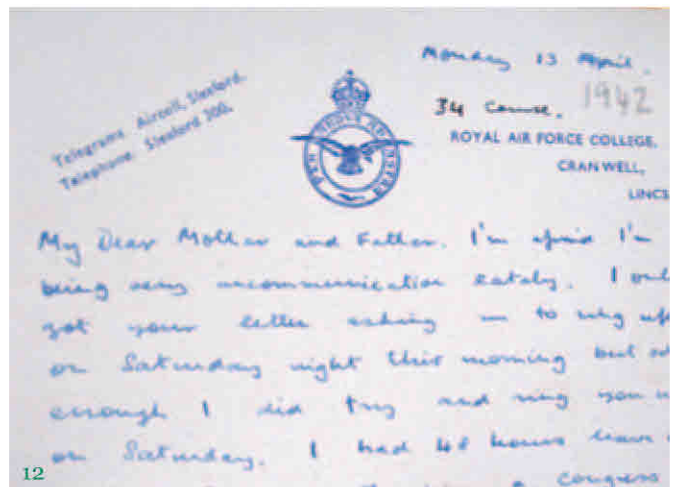 Monday 13 April.
1942
34 Course.
Telegrams Aircoll, Sleaford.
Telephone Sleaford 300.
PER ARDUA AD ASTRA
ROYAL AIR FORCE COLLEGE,
CRANWELL,
LINCS
My Dear Mother and Father. I'm afraid I'm
being very uncommunication lately. I onl
got your letter asking me to ring up
on Saturday night this morning but
enough I did try and ring you
on Saturday. I had 48 hours leave
congress
12